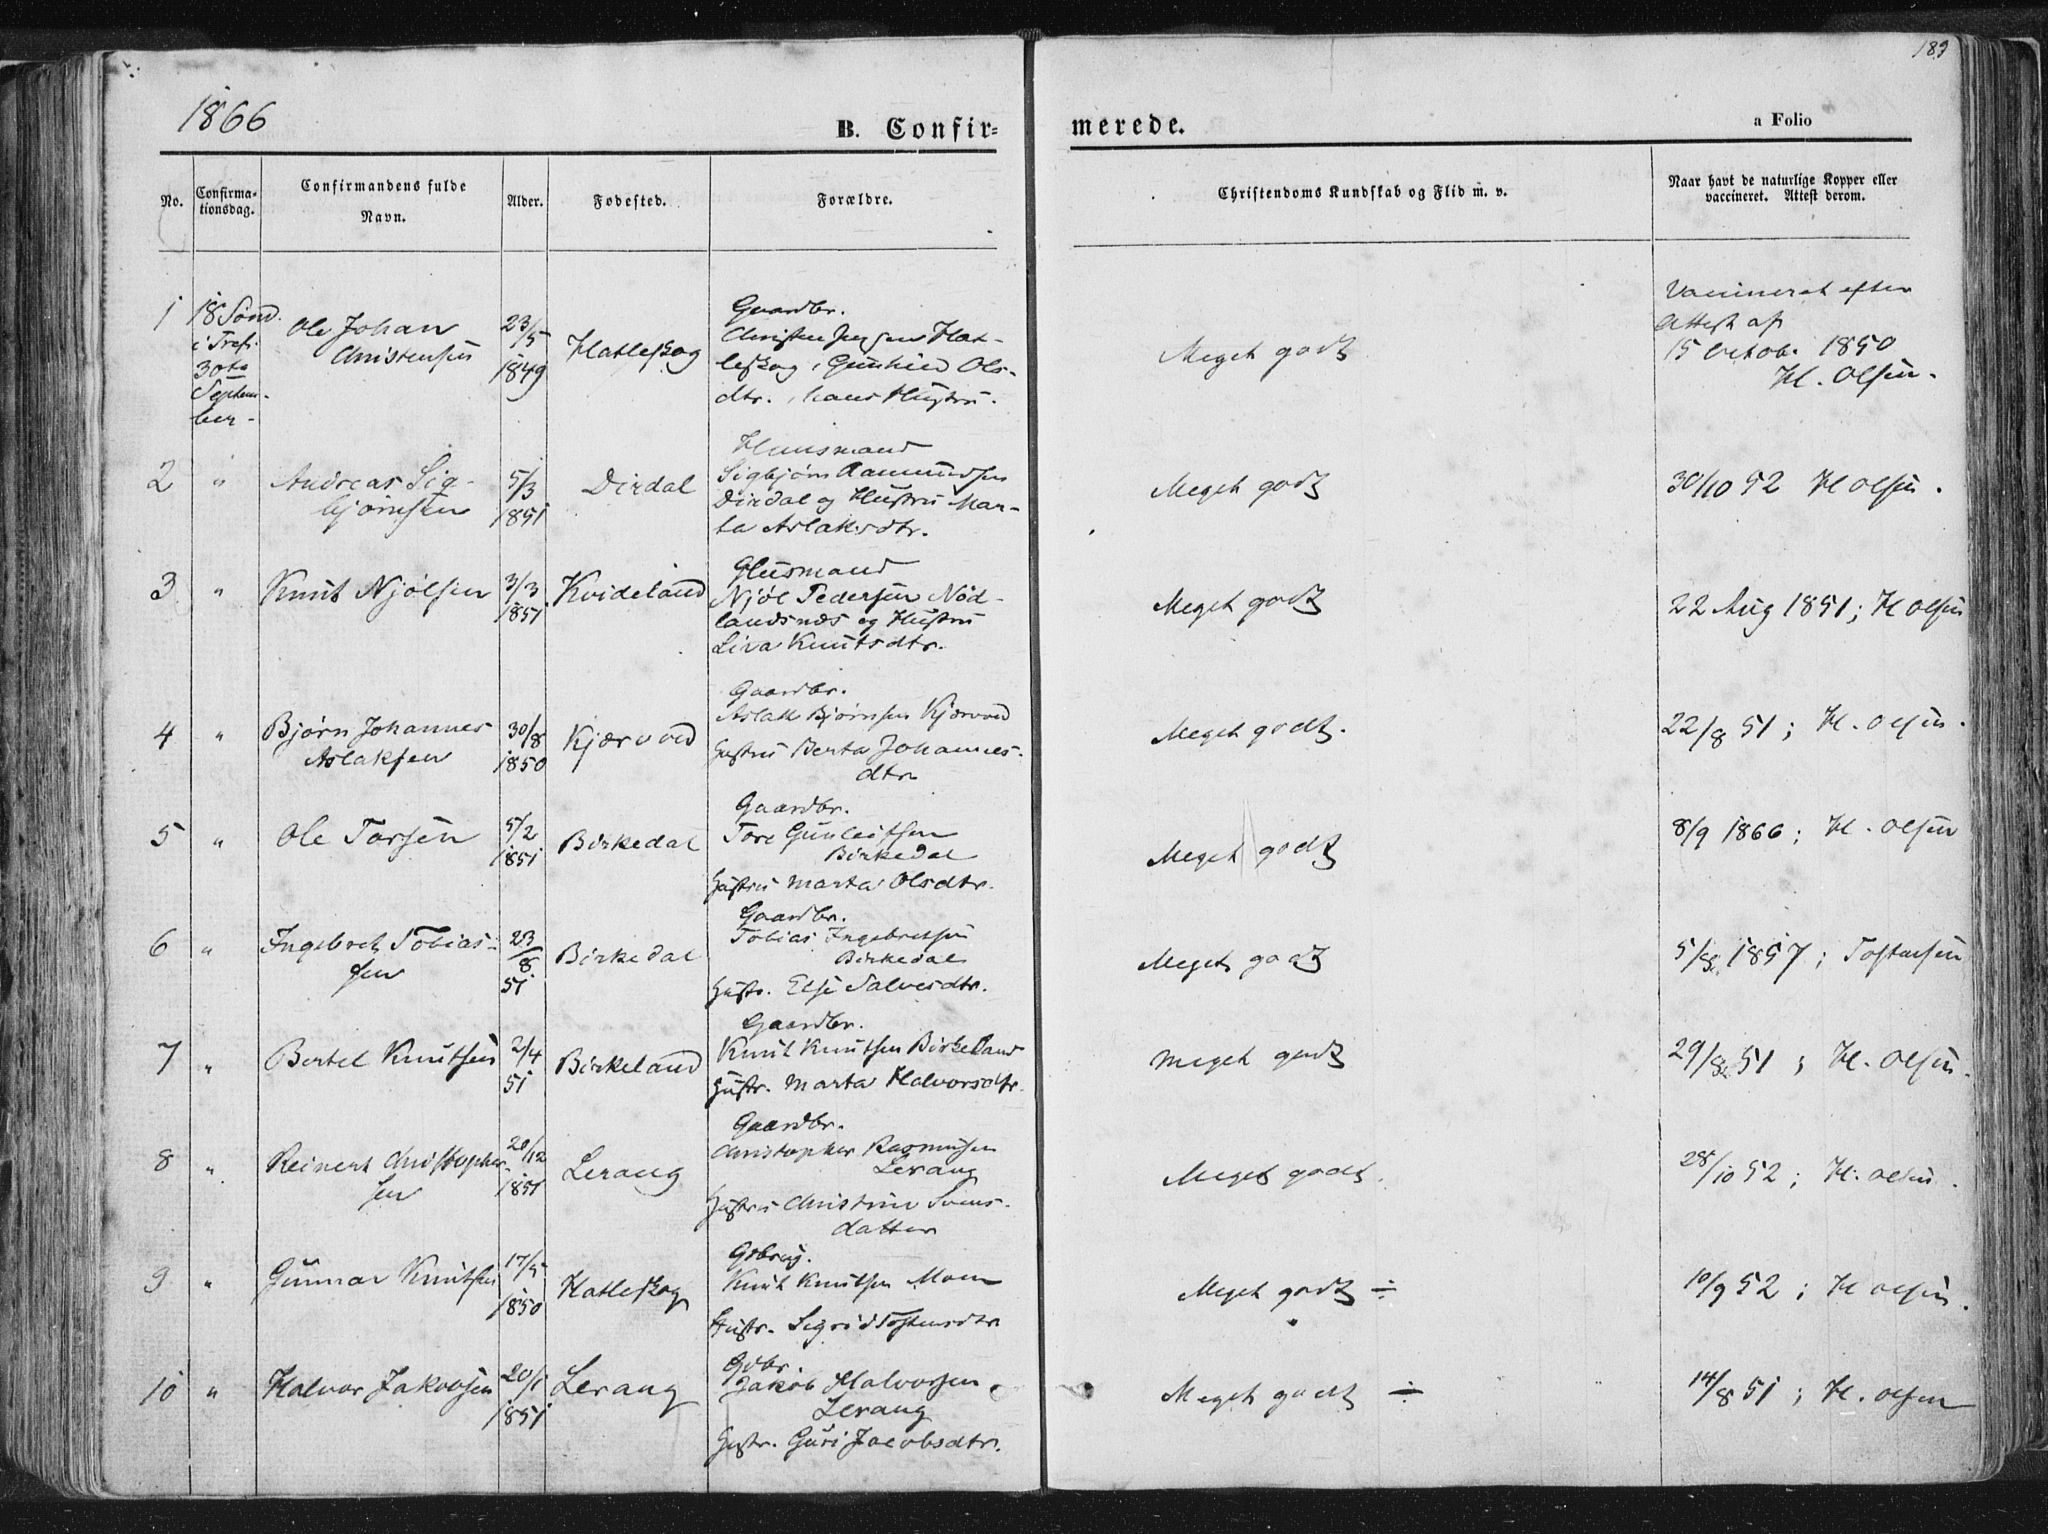 183
1866
B. Confir-
merede.
a Folio
No.
Confirma-
tionsdag.
Confirmandens fulde
Navn.
Alder.
Fødested.
Forældre.
Christendoms Kundskab og Flid m. v.
Naar havt de naturlige Kopper eller
vaccineret. Attest derom.
1
18 Sønd.
i Tref.
30te
Septem-
ber.
Ole Johan
Christensen
23/5
1849
Hatleskog
Gaardbr.
Christen Jensen Hat-
leskog, Gunhild Ols-
dtr., hans Hustru.
Meget godt
Vaccineret efter
Attest af
15 Octob. 1850
H. Olsen.
2 "
Andreas Sig-
bjørnsen
5/3
1851
Dirdal
Huusmand
Sigbjørn Aamundsen
Dirdal og Hustru Mar-
ta Aslaksdtr.
Meget godt
30/10 52 H Olsen.
3 "
Knut Njølsen
3/3
1851
Kvideland
Huusmand
Njøl Pedersen Nød-
landsnæs og Hustru
Liva Knutsdtr.
Meget godt
22 Aug 1851; H Olsen
4 "
Bjørn Johannes
Aslaksen
30/8
1850
Kjærvold
Gaardbr.
Aslak Bjørnsen Kjærvold
Hustru Berta Johannes-
dtr
Meget godt.
22/8 51; H. Olsen.
5 "
Ole Torsen
5/2
1851
Birkedal
Gaardbr.
Tore Gunleifsen
Birkedal
Hustru Marta Olsdtr.
Meget godt
8/9 1866; H. Olsen
6 "
Ingebret Tobias-
sen
23
/8
51
Birkedal
Gaardbr.
Tobias Ingebretsen
Birkedal
Hustr. Else Salvesdtr.
Meget godt
5/8 1857; Tostensen
7 "
Bertel Knutsen
2/4
51
Birkeland
Gaardbr.
Knut Knutsen Birkeland
Hustr. Marta Halvorsdtr.
Meget godt
29/8 51; H. Olsen.
8 "
Reinert Christopher-
sen
20/12
1851
Lerang
Gaardbr.
Christopher Rasmusen
Lerang
Hustru Christine Svens-
datter
Meget godt.
28/10 52; H. Olsen.
9 "
Gunnar Knutsen
17/5
1850
Hatleskog
Gdbrug.
Knut Knutsen Moen
Hustr. Sigrid Tostensdtr
Meget godt ÷
10/9 52; H Olsen.
10 "
Halvor Jakobsen
20/1
1851
Lerang
Gdbr.
Jakob Halvorsen
Lerang
Hustr. Guri Jacobsdtr.
Meget godt ÷
14/8 51; H. Olsen